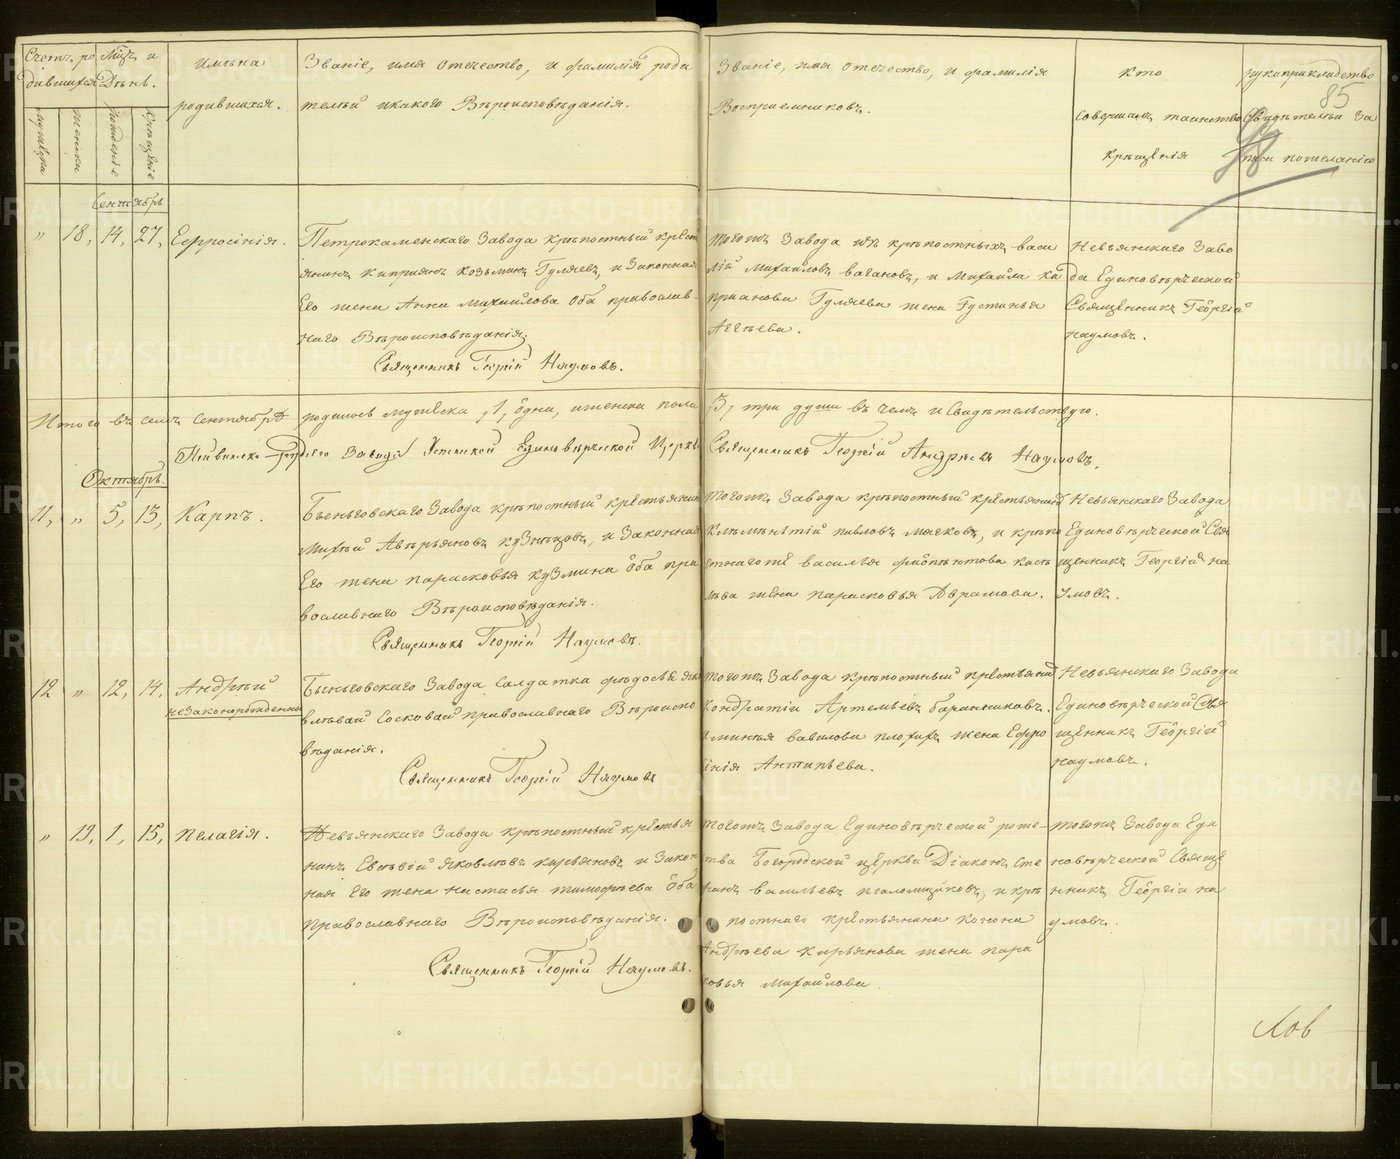 Счетъ ро
дившихся
Мѣц и
Дѣнь.
имѣна
родившихся.
Званіе, имя отечество, и фамилія роди
телей икакого Вѣроисповѣданія.
Званіе, имя отечество, и фамилія
Восприемниковъ.
кто
совершалъ таинство
крѣщенія
рукоприкладство
Свидѣтелей за
писи пожеланію
85
мужѣска
женска
рожденіе
крѣщеніе
Сентябрь
" 18, 14, 27, Ефросинія.
Петрокаменскаго Завода крѣпостный крест
янинъ киприянъ козьминъ Гуляевъ, и Законная
Его жена Анна михайлова оба православ-
наго Вѣроисповѣданія.
Священникъ Георгій Наумовъ.
тогожъ Завода изъ крѣпостныхъ васи
лій михайловъ вагановъ, и михайла ки
прианова Гуляева жена Густинья
Авгѣева.
Невьянскаго Заво
да Единовѣрческой
Священникъ Георгій
наумовъ.
Итого въ семъ сентябрѣ родилось мужѣска 1, одна, иженска пола 3, три души въ чемъ и Свидѣтельствую.
Завода Единовѣрческой Церкви Священникъ Георгій Андреевъ Наумовъ.
Октябрь.
11, " 5, 13, Карпъ.
Быньговскаго Завода крѣпостный крестьянин
михѣй Аверьяновъ кузнецовъ, и Законная
Его жена парасковья кузмина оба пра
вославнаго Вѣроисповѣданія.
Священникъ Георгій Наумовъ.
тогожъ Завода крѣпостный крестьянин
Клѣмѣнтій павловъ мячковъ, и крѣпо
стнагоже василья
жена парасковья Аврамова.
Невьянскаго Завода
Единовѣрческой Свя
щенникъ Георгій на
умовъ.
12 " 12, 14, Андрѣй
незаконорожденный
Быньговскаго Завода Салдатка фѣдосья яко
влѣвай Сосковай православнаго Вѣроиспо
вѣданія.
Священникъ Георгій Наумовъ
тогожъ Завода крѣпостный крестьянин
Кондратій Артемьевъ баранниковъ.
вавилова плохихъ жена Ефро
інія Антипьева.
Невьянскаго Завода
Единовѣрческой Свя
щенникъ Георгій
наумовъ.
" 19, 1, 15, пелагія.
Невьянскаго Завода крѣпостный крестья
нинъ Евсѣвій яковлевъ кирьяновъ и Закон
ная Его жена настасья тимофѣева оба
православнаго Вѣроисповѣданія.
Священникъ Георгій Наумовъ.
тогожъ Завода Единовѣрческой роже-
ства Богородской церкви Діаконъ Сте
нинъ васильевъ псаломщиковъ, и крѣ
постнаго крестьянина конона
Андрѣева кирьянова жена пара
ковья михайлова.
тогожъ Завода Еди
новѣрческой Свящѣ
нникъ Георгіи на
умовъ.
METRIKI.GASO-URAL.RU